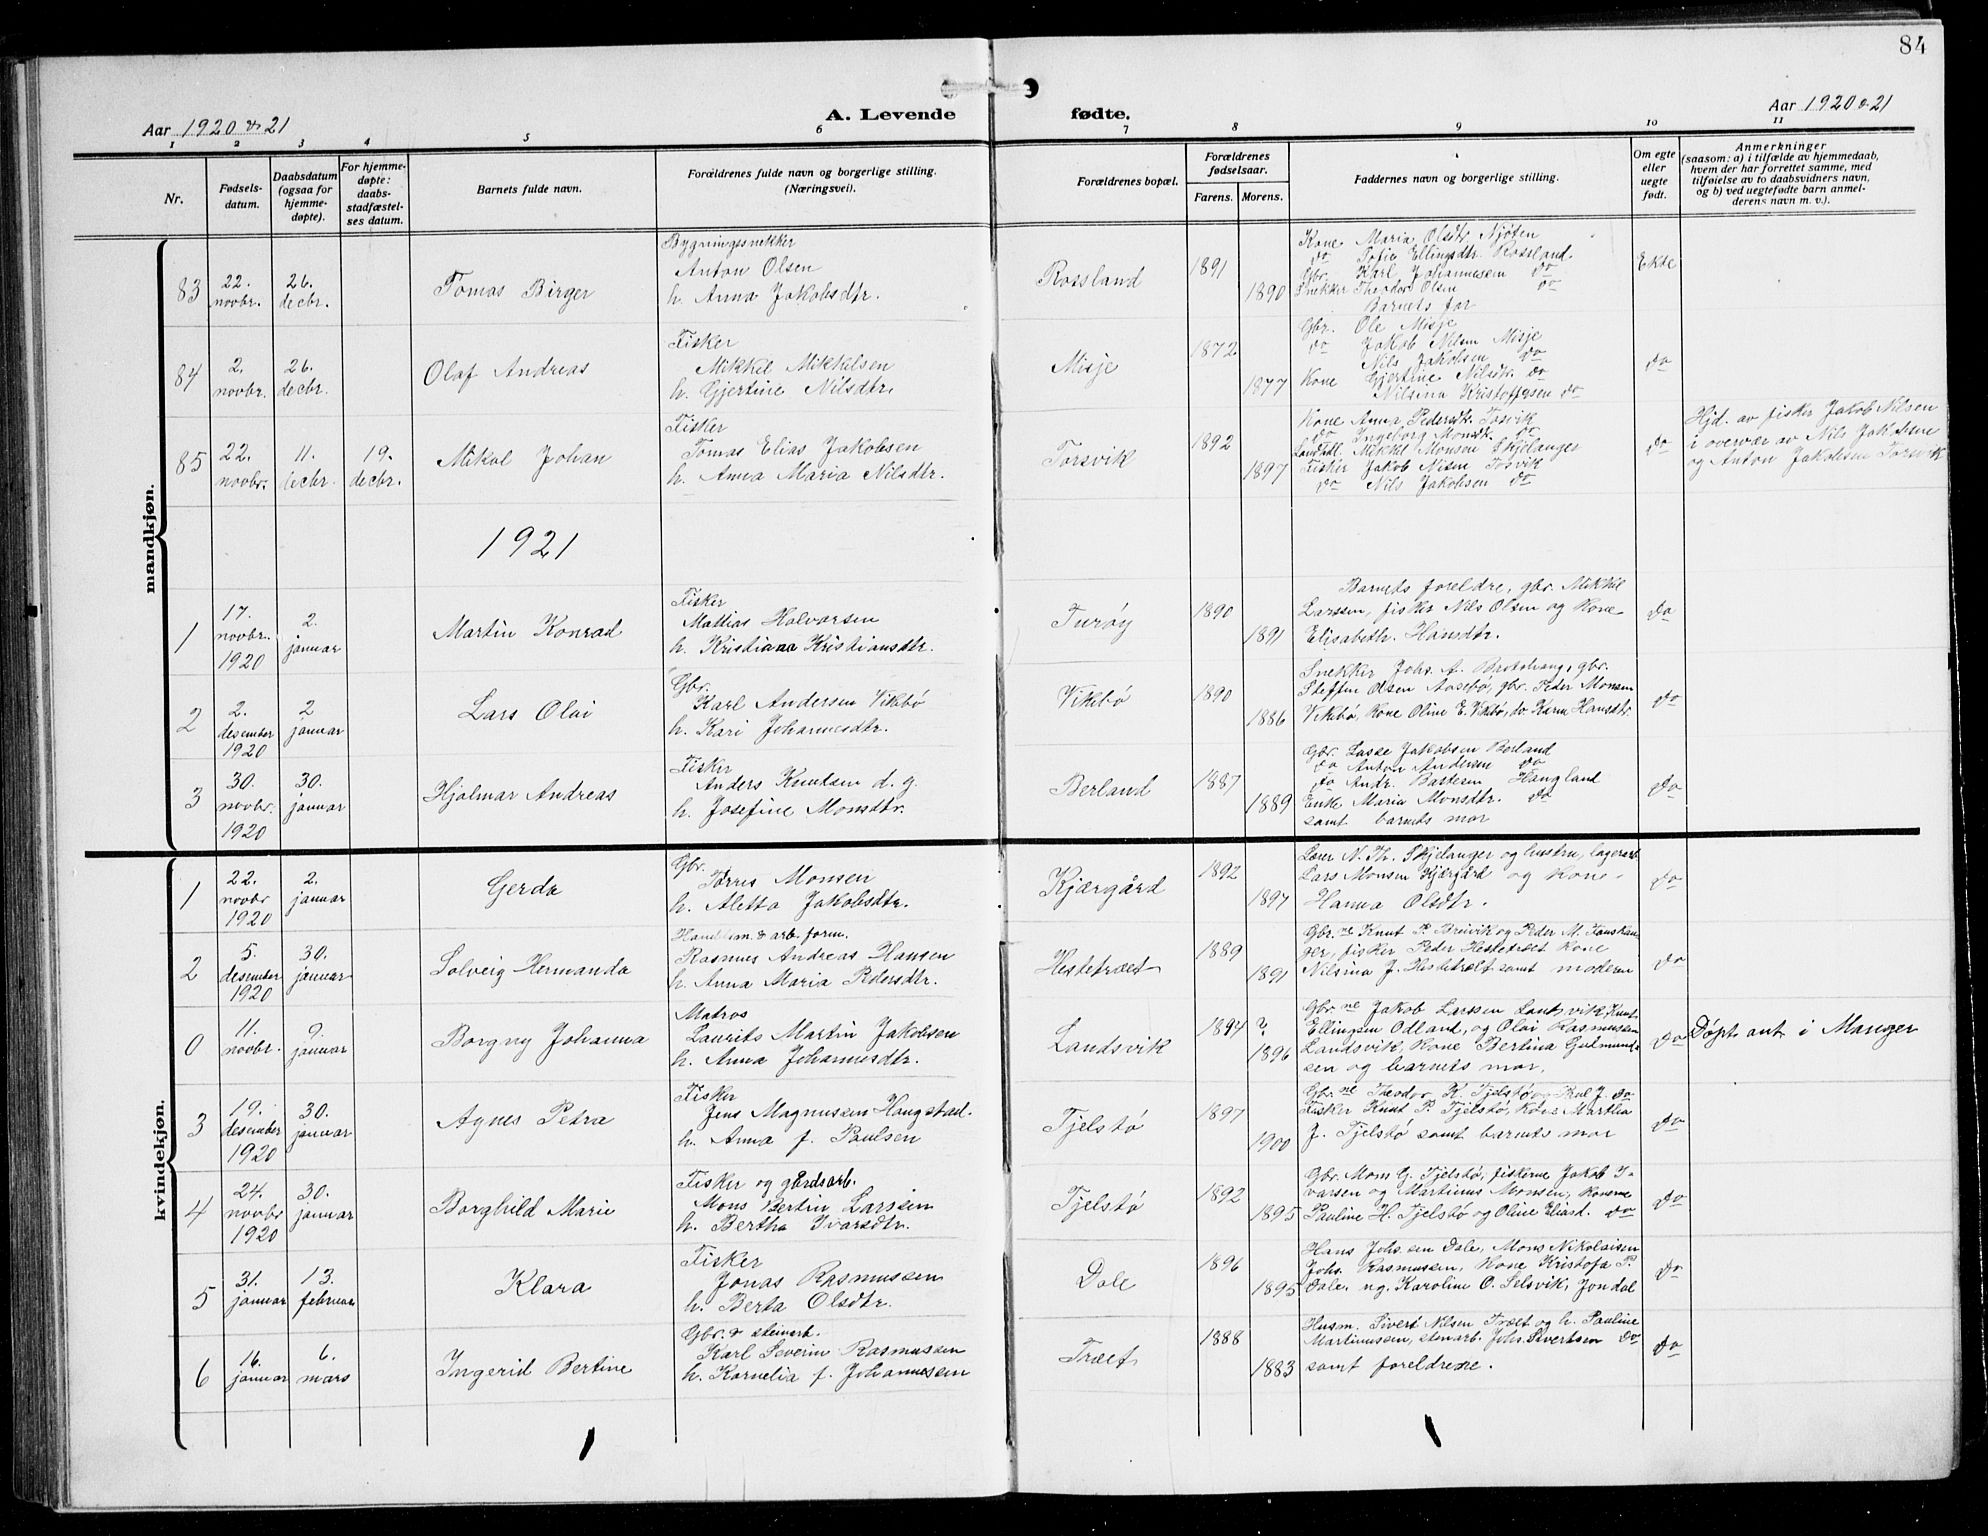 84
Aar 1920 & 21
A. Levende fødte.
Aar 1920 & 21
1 2 3 4 5 6 7 8 9 10 11
Nr.
Fødsels-
datum.
Daabsdatum
(ogsaa for
hjemme-
døpte).
For hjemme-
døpte:
daabs-
stadfæstel-
ses datum.
Barnets fulde navn.
Forældrenes fulde navn og borgerlige stilling.
(Næringsvei).
Forældrenes bopæl.
Forældrenes
fødselsaar.
Farens. Morens.
Faddernes navn og borgerlige stilling.
Om egte
eller
uegte
født.
Anmerkninger
(saasom: a) i tilfælde av hjemmedaab,
hvem der har forrettet samme, med
tilføielse av to daabsvidners navn,
og b) ved uegtefødte barn anmel-
derens navn m. v.).
mandkjøn.
83
22.
novbr.
26.
decbr.
Tomas Birger
Bygningssnekker
Anton Olsen
h. Anna Jakobsdtr.
Rossland
1891
1890
Kone Maria Olsdtr Njøten
do Sofie Ellingsdtr. Rossland.
Gbr. Karl Johannesen do
Snekker Theodor Olsen do
Barnets far
Ekte
84
2.
novbr.
26.
decbr.
Olaf Andreas
Fisker
Mikkel Mikkelsen
h. Gjertine Nilsdtr.
Misje
1872
1877
Gbr. Ole Misje
do Jakob Nilsen Misje
Nils Jakobsen do
Kone Gjertine Nilsdtr do
Nilsina Kristoffersen do
do
85
22.
novbr.
11.
decbr.
19.
decbr.
Mikal Johan
Fisker
Tomas Elias Jakobsen
h. Anna Maria Nilsdtr.
Torsvik
1892
1897
Kone Anna Pedersdtr. Torsvik
do Ingeborg Monsdtr. do
Mikkel Monsen Skjelanger
Fisker Jakob Nilsen Tosvik
do Nils Jakobsen do
do
Hjd. av fisker Jakob Nilsen
i overvær av Nils Jakobsen
og Anton Jakobsen Torsvik
1921
1
17.
novbr.
1920
2.
januar
Martin Konrad
Fisker
Mattias Halvorsen
h. Kristiana Kristiansdtr.
Turøy
1890
1891
Barnets foreldre, gbr. Mikkel
Larssen, fisker Nils Olsen og kone
Elisabeth. Hansdtr.
do
2
2.
desember
1920
2
januar
Lars Olai
Gbr.
Karl Andersen Vikbø
h. Kari Johannesdtr.
Vikebø
1890
1886
Snekker Johs. A. gbr.
Steffen Olsen Aasebø, gbr. Peder Monsen
Vikebø, Kone Oline E. Vikbø, do Karen Hansdtr.
do
3
30.
novbr.
1920
30.
januar
Hjalmar Andreas
Fisker
Anders Knutsen d. y.
h. Josefine Monsdtr.
Berland
1887
1889
Gbr. Lasse Jakobsen Berland
do Anton Andersen do
do Andr. Bastesen Haugland
Enke Maria Monsdtr. do
samt barnets mor
do
kvindekjøn.
1
22.
novbr
1920
2.
januar
Gerda
Gbr.
Torris Monsen
h. Aletta Jakobsdtr.
Kjærgård
1892
1897
Lærer N. Th. Skjelanger og hustru, lagerarb.
Lars Monsen Kjærgård og kone
Hanna Olsdtr.
do
2
5.
desember
1920
30.
januar
Solveig Hermanda
Handelsm. & arb. form.
Rasmus Andreas Hansen
h. Anna Maria Pedersdtr.
Hestetræet
1889
1891
Gbr.ne Knut P. Breivik og Peder M.
ger, fisker Peder Hestetræet kone
Nilsina J. Hestetræet samt moderen
do
0
11.
novbr.
9.
januar
Borgny Johanna
Matros
Laurits Martin Jakobsen
h. Anna Johannesdtr.
Landsvik
1894 ?
1896
Gbr.ne Jakob Larssen Landsvik, Knut
Ellingsen Odland, og Olai Rasmussen
Landsvik, Kone Bertina Gudmund-
sen og barnets mor.
do
Døpt ant i Manger
3
19.
desember
1920
30.
januar
Agnes Petra
Fisker
Jens Magnussen Haugstad.
h. Anna f. Paulsen
Tjelstø
1897
1900
Gbr.ne Theodor K. Tjelstø og Paul J. do
Fisker Knut P. Tjelstø, Kone Martha
J. Tjelstø samt barnets mor
do
4
24.
novbr
1920
30.
januar
Borghild Marie
Fisker og gårdsarb.
Mons Bertin Larssen
h. Bertha Ivarsdtr.
Tjelstø
1892
1895
Gbr. Mons G. Tjelstø, fiskerne Jakob I-
varsen og Martinus Monsen, konerne
Pauline H. Tjelstø og Oline Eliasd. do
do
5
31.
januar
13.
februar
Klara
Fisker
Jonas Rasmussen
h. Berta Olsdtr.
Dale
1896
1895
Hans Johs.sen Dale, Mons Nikolaisen
Johs. Rasmussen, Kone Kristofa P.
Dale, ug. Karoline O. Selsvik, Jondal
do
6
16.
januar
6.
mars
Ingerid Bertine
Gbr. & steinarb.
Karl Severin Rasmussen
h. Kornelia f. Johannessen
Træet
1888
1883
Husm. Sivert Nilsen Træet og h. Pauline
Martinussen, stenarb. Johs. Sivertsen do
samt foreldrene.
do